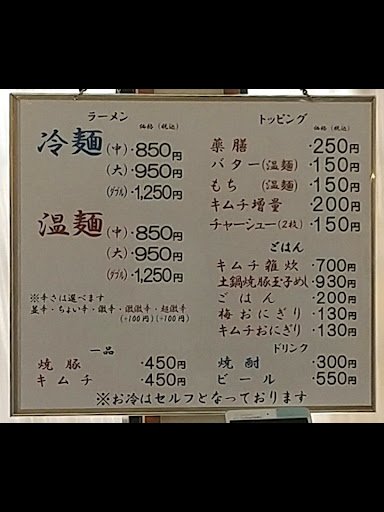 ラーメン
価格(税込)
冷麺(中)・850円
(大)・950円
(ダブル)・1,250円
温麺(中)・850円
(大)・950円
(ダブル)・1,250円
※辛さは選べます
並辛・ちょい辛・激辛・激激辛・超激辛
(+100円)(+100円)
一品
焼豚 ・450円
キムチ ・450円
トッピング
価格(税込)
薬膳 ・250円
バター(温麺)・150円
もち (温麺)・150円
キムチ増量 ・200円
チャーシュー(2枚)・150円
ごはん
キムチ雑炊 ・700円
土鍋焼豚玉子めし・930円
ごはん ・200円
梅おにぎり ・130円
キムチおにぎり・130円
ドリンク
焼酎 ・300円
ビール ・550円
※お冷はセルフとなっております